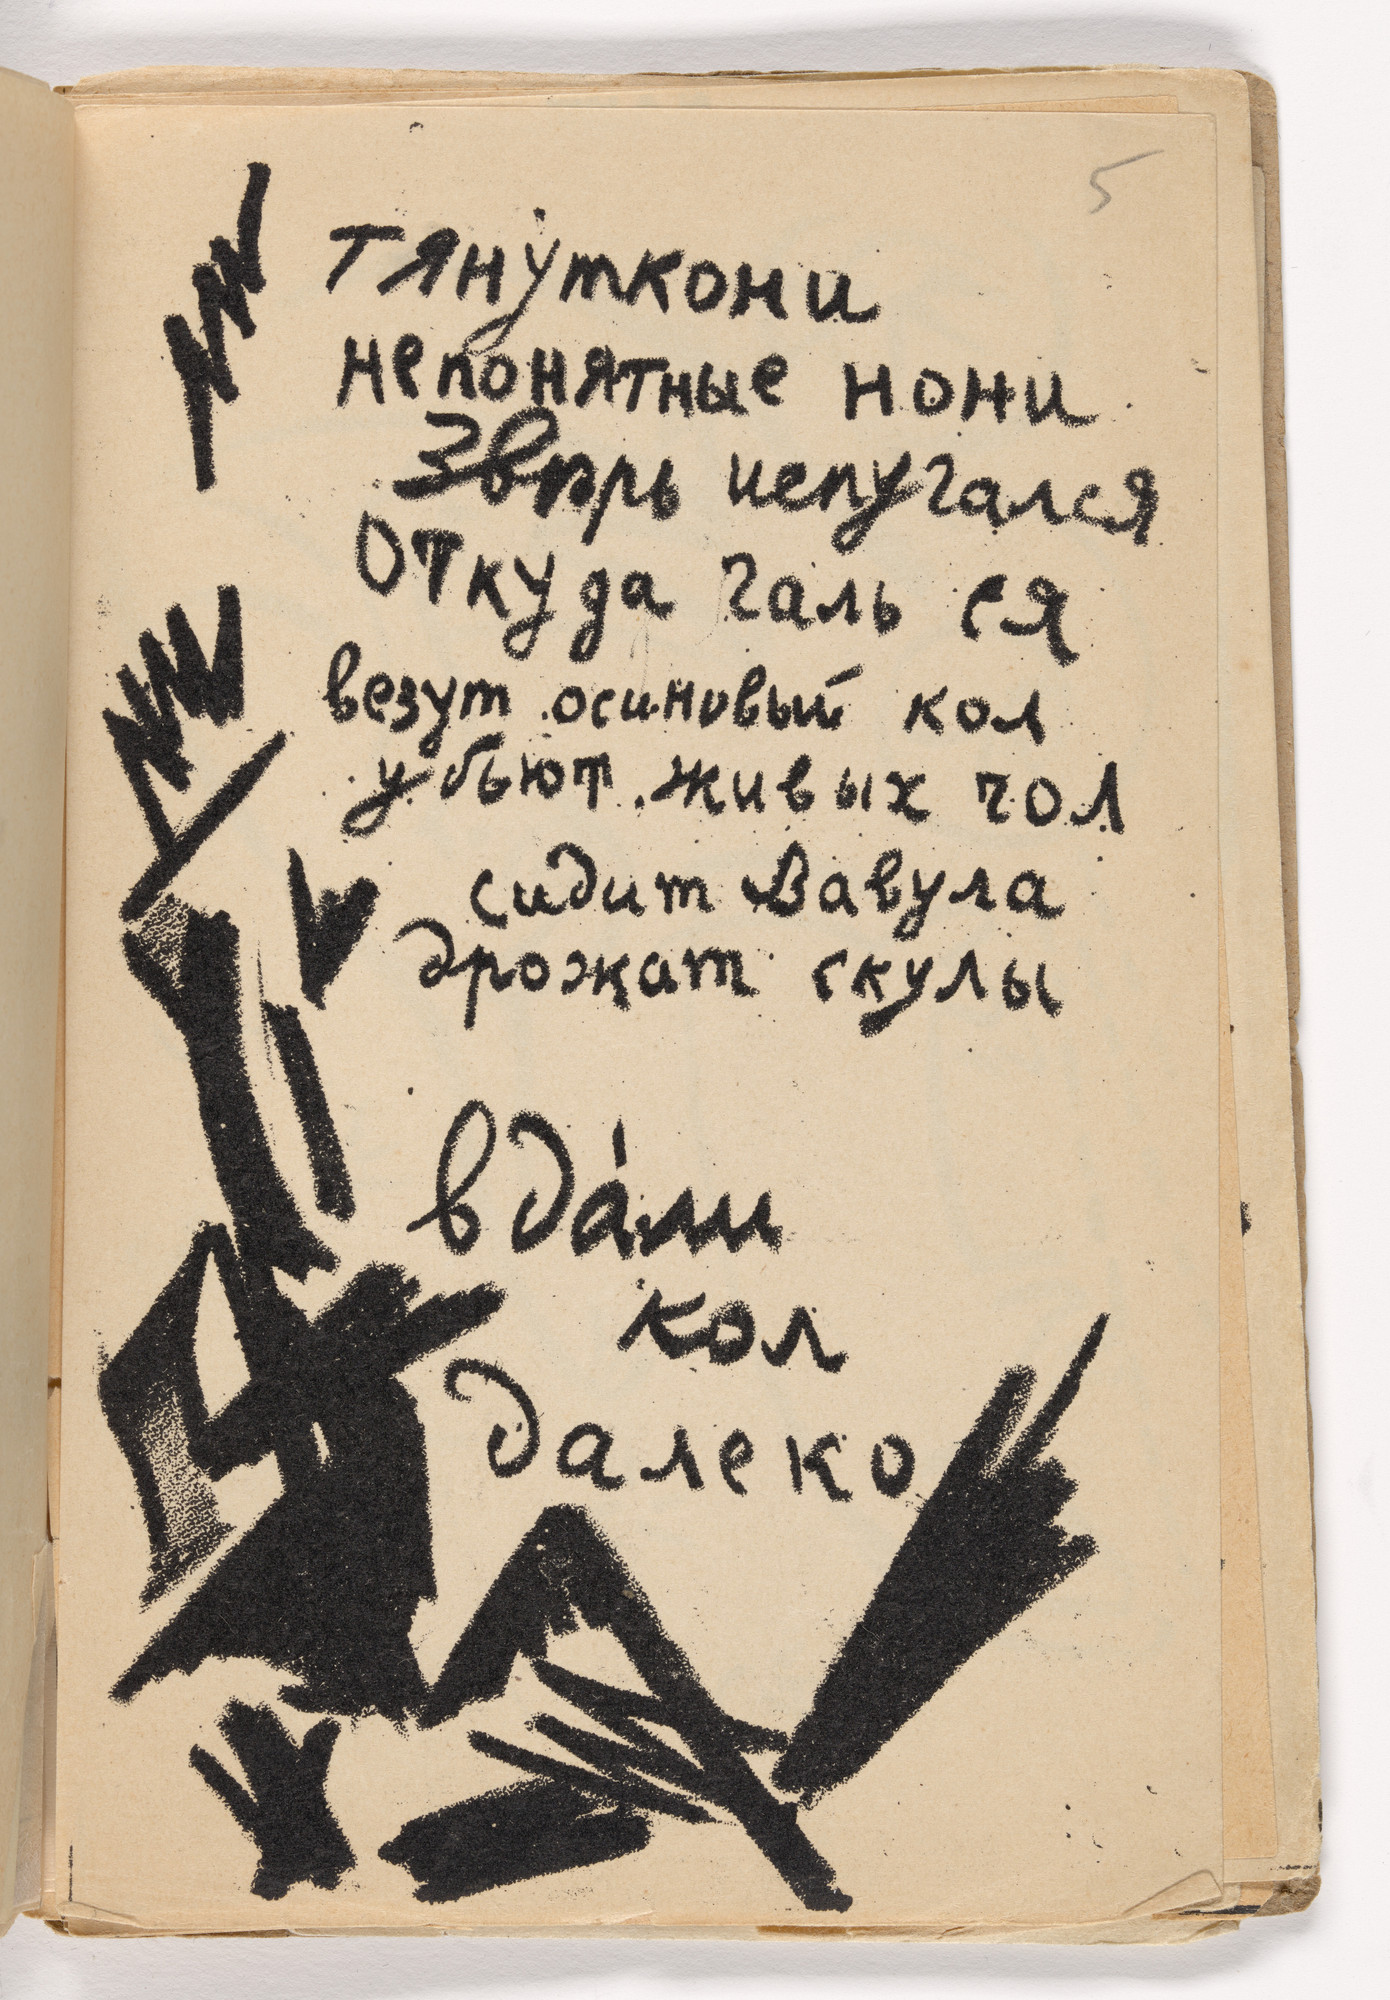 5
тянуткони
непонятные нони
Звѣрь испугался
Откуда галь ся
везут осиновый кол
убьют живых чол
сидит Вавула
дрожат скулы
вда́ли
кол
далеко